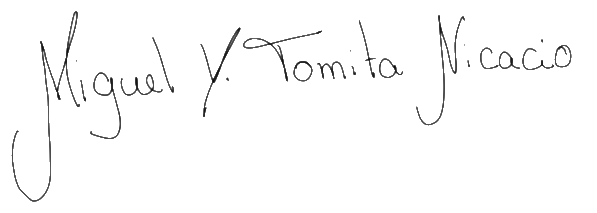 Miguel Y. Tomita Nicacio